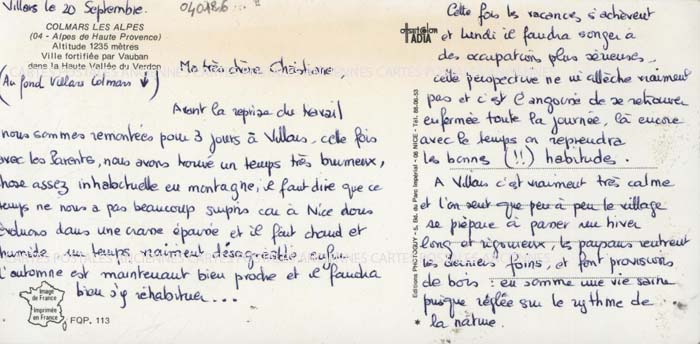 Villars le 20 Septembre.
040186
COLMARS LES ALPES
(04 - Alpes de Haute Provence)
Altitude 1235 mètres
Ville fortifiée par Vauban
dans la Haute Vallée du Verdon
(Au fond Villars Colmars ↓)
Ma très chère Christiane,
Avant la reprise du travail
nous sommes remontées pour 3 jours à Villars, cette fois
avec les Parents, nous avons trouvé un temps très brumeux,
chose assez inhabituelle en montagne, il faut dire que ce
temps ne nous a pas beaucoup surpris car à Nice nous
évoluons dans une crasse épaisse et il fait chaud et
humide un temps vraiment désagréable, enfin
l'automne est maintenant bien proche et il faudra
bien s'y réhabituer...
Image
de France
Imprimée
en France
FQP. 113
Editions PHOTOGUY - 5, Bd. du Parc Impérial - 06 NICE - Tél. 88-06-53
Cette fois les vacances s'achèvent
et lundi il faudra songer à
des occupations plus sérieuses.
cette perspective ne m'allèche vraiment
pas et c'est l'angoisse de se retrouver
enfermée toute la journée, là encore
avec le temps on reprendra
les bonnes (!!) habitudes.
A Villars c'est vraiment très calme
et l'on sent que peu à peu le village
se prépare à passer un hiver
long et rigoureux, les paysans rentrent
les derniers foins, et font provisions
de bois : en somme une vie saine
puisque réglée sur le rythme de
* la nature.